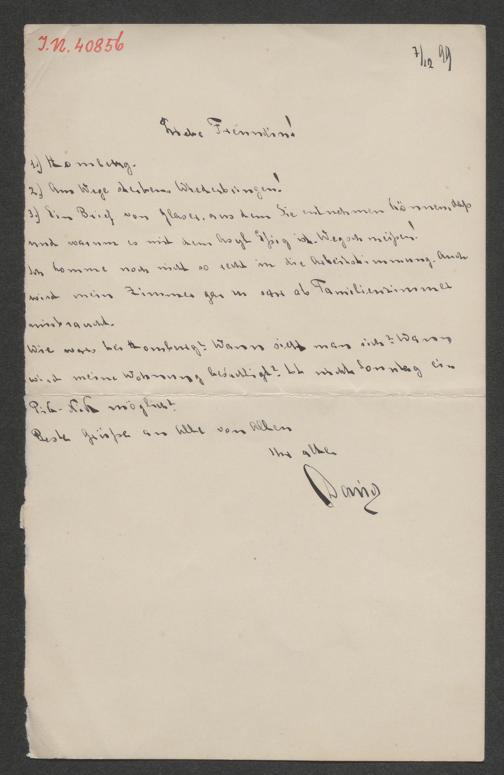 I.N. 40856
7/12 99
Liebe Freundin!
1.) Homburg.
2.) Am Wege sterben. Wiederbringen!
3.) Ein Brief von Glaser, aus dem Sie entnehmen können, daß
und warum es mit dem Asyl Essig ist. Wegschmeißen!
Ich komme noch nicht so recht in die Arbeitsstimmung. Auch
wird mein Zimmer gar zu sehr als Familienzimmer
mißbraucht.
Wie war's bei Homburg? Wann sieht man sich? Wann
wird meine Wohnung besichtigt? Ist nicht Sonntag ein
möglich?
Beste Grüße an Alle von Allen
Ihr alter
David